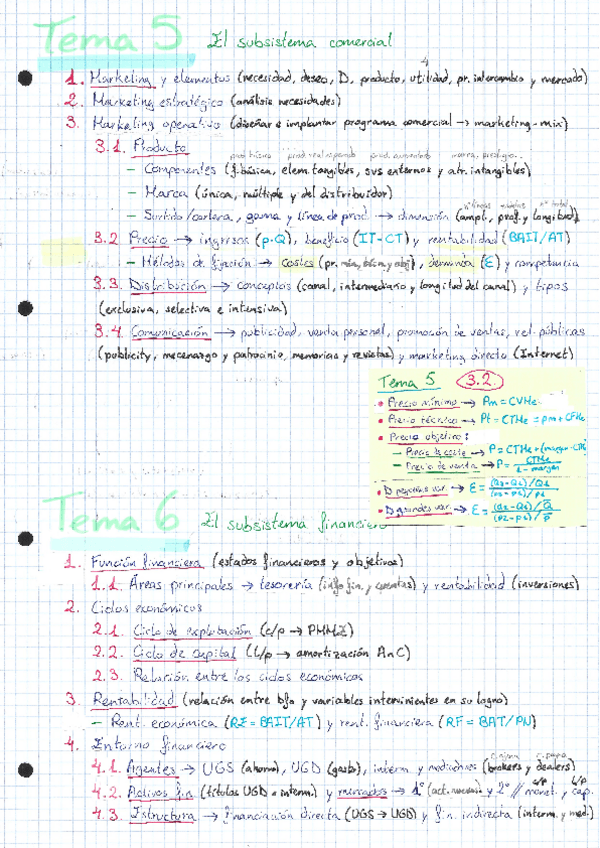 Tema 5 El subsistema comercial
1. Marketing y elementos (necesidad, deseo, D, producto, utilidad, pr. intercambio y mercado)
2. Marketing estratégico (análisis necesidades)
3. Marketing operativo (diseñar e implantar programa comercial → marketing-mix)
3.1. Producto
prod. básico prod. real esperado prod. aumentado marca, prestigio...
- Componentes (f. básica, elem. tangibles, svs externos y atr. intangibles)
- Marca (única, múltiple y del distribuidor)
- Surtido/cartera, gama y línea de prod. → dimensión (ampl., prof. y longitud)
3.2 Precio → ingresos (p·Q), beneficio (IT-CT) y rentabilidad (BAIT/AT)
- Métodos de fijación → costes (pr. mín, técn y obj), demanda (E) y competencia
3.3. Distribución → conceptos (canal, intermediario y longitud del canal) y tipos
(exclusiva, selectiva e intensiva)
3.4. Comunicación → publicidad, venta personal, promoción de ventas, rel. públicas
(publicity, mecenazgo y patrocinio, memorias y revistas) y marketing directo (Internet)
Tema 5 3.2.
• Precio mínimo → Pm = CVMe
• Precio técnico → Pt = CTMe = pm + CFMe
• Precio objetivo:
- Precio de coste → P = CTMe + (margen · CTMe
- Precio de venta → P = CTMe / 1 - margen
• D pequeñas var. → E = (Q2 - Q1) / Q1 / (P2 - P1) / P1
• D grandes var. → E = (Q2 - Q1) / Q / (P2 - P1) / P
Tema 6 El subsistema financiero
1. Función financiera (estados financieros y objetivos)
1.1. Áreas principales → tesorería (info fin. y cuentas) y rentabilidad (inversiones)
2. Ciclos económicos
2.1. Ciclo de explotación (c/p → PMM)
2.2. Ciclo de capital (L/p → amortización AnC)
2.3. Relación entre los ciclos económicos
3. Rentabilidad (relación entre bfo y variables intervinientes en su logro)
- Rent. económica (RE = BAIT/AT) y rent. financiera (RF = BAT/PN)
4. Entorno financiero
4.1. Agentes → UGS (ahorro), UGD (gasto), interm y mediadores (brokers y dealers)
4.2. Activos fin. (títulos UGD e interm) y mercados → 1º (act. nuevos) y 2º // monet. y cap.
4.3. Estructura → financiación directa (UGS → UGD) y fin. indirecta (interm. y med.)